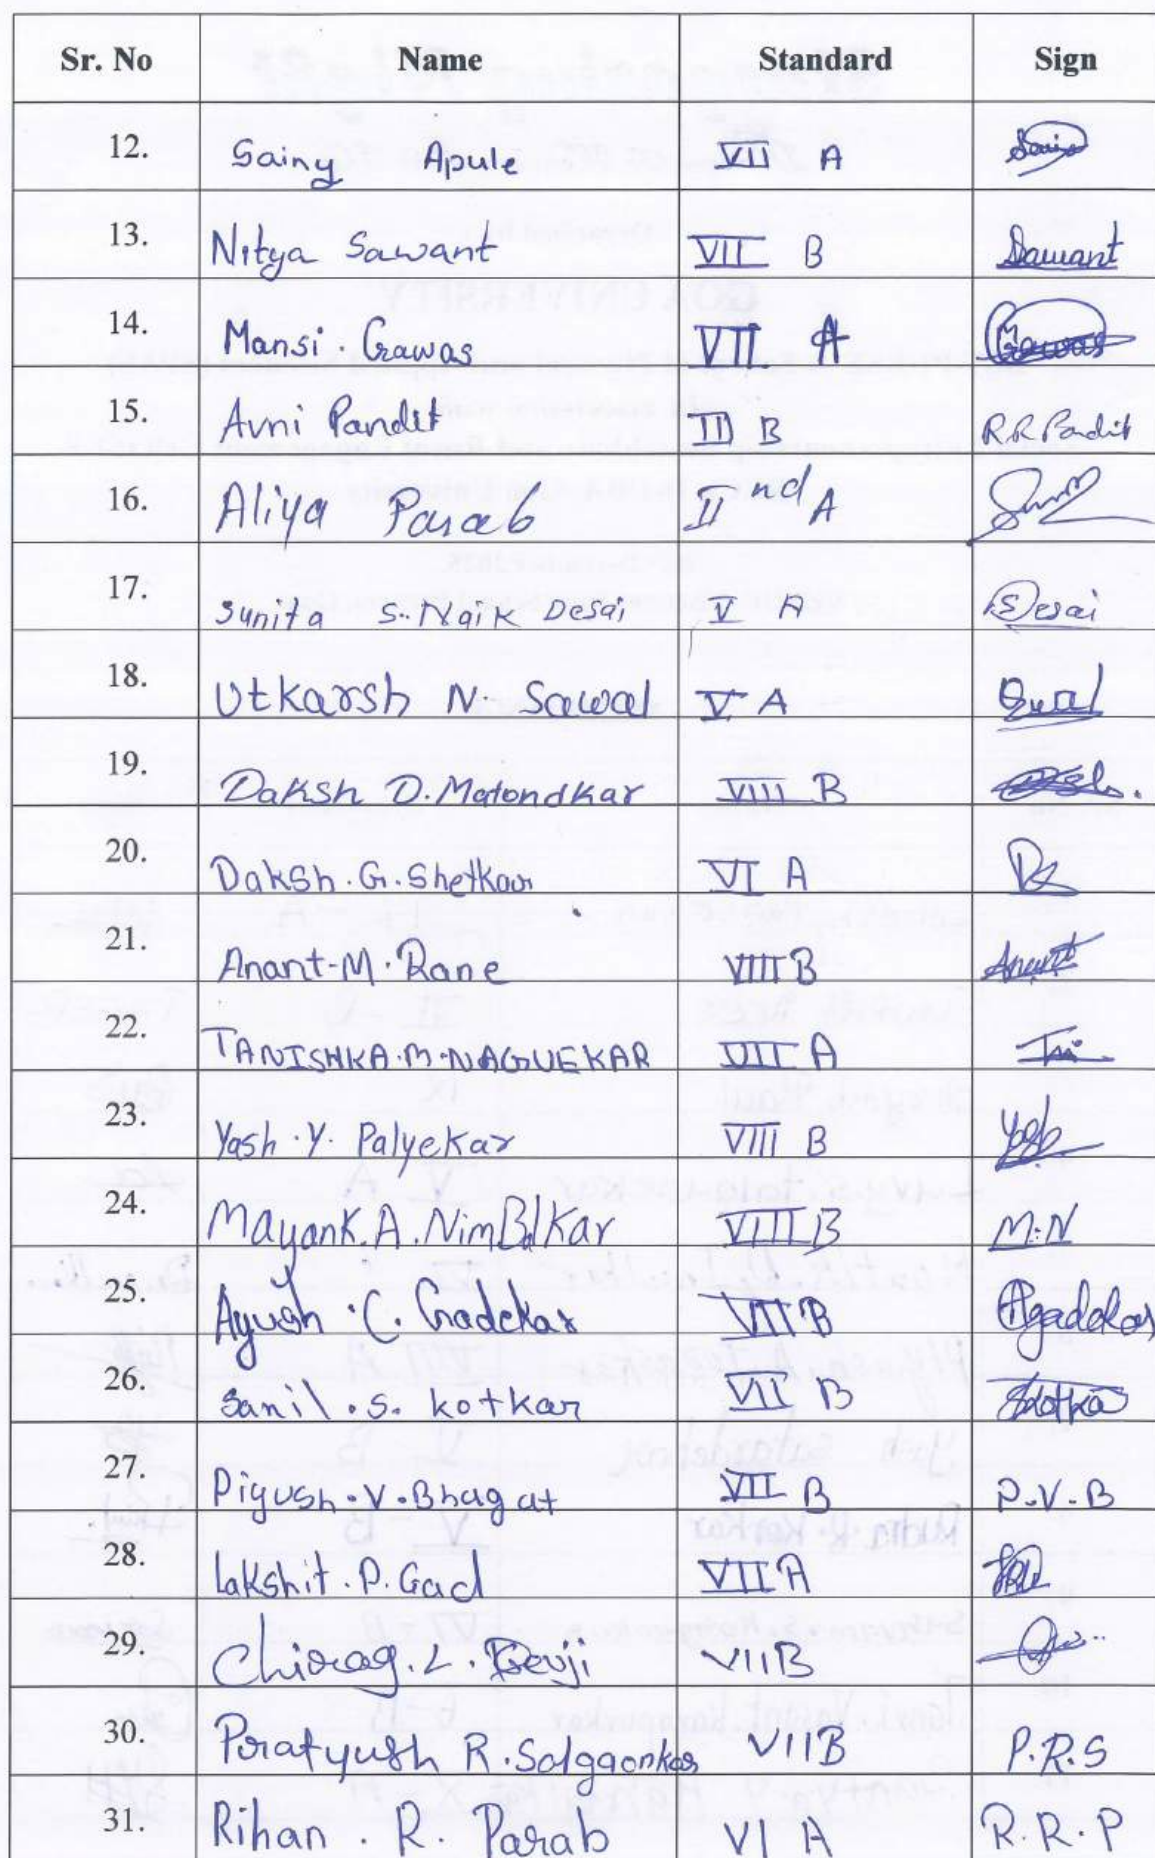 Sr. No Name Standard Sign
12. Sainy Apule VII A
13. Nitya Sawant VII B Sawant
14. Mansi. Gawas VII A Gawas
15. Avni Pandit II B R.R.Pandit
16. Aliya Parab II nd A
17. Sunita S. Naik Desai V A Desai
18. Utkarsh N. Sawal V A
19. Daksh D. Matondkar VIII B
20. Daksh. G. Shetkar VI A
21. Anant-M. Rane VIII B Anant
22. TANISHKA.M.NAGVEKAR VII A
23. Yash .Y. Palyekar VIII B Yash
24. Mayank.A.Nimbalkar VIII B M.N
25. Ayush .C. Gadekar VII B Agadekar
26. Sanil .S. kotkar VII B Skotkar
27. Piyush.V.Bhagat VII B P.V.B
28. Lakshit .P. Gad VII A
29. Chirag. L. VIIB
30. Pratyush R. Salgaonkar VIIB P.R.S
31. Rihan . R. Parab VI A R.R.P